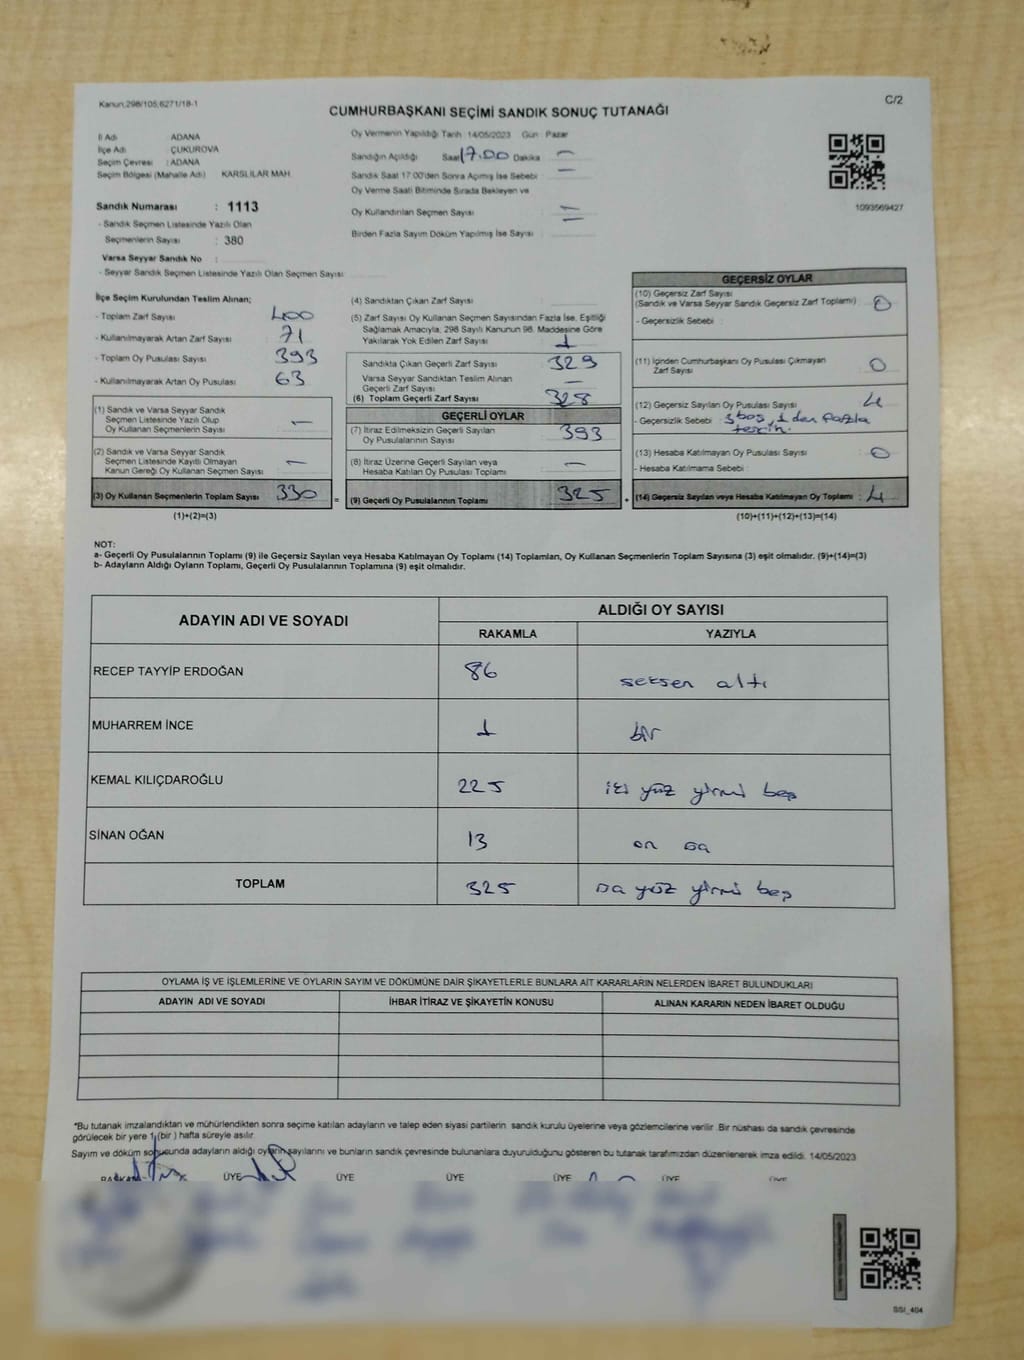 Kanun:298/105;6271/18-1
C/2
CUMHURBAŞKANI SEÇİMİ SANDIK SONUÇ TUTANAĞI
İl Adı : ADANA
İlçe Adı : ÇUKUROVA
Seçim Çevresi : ADANA
Seçim Bölgesi (Mahalle Adı) : KARSLILAR MAH.
Sandık Numarası : 1113
- Sandık Seçmen Listesinde Yazılı Olan
Seçmenlerin Sayısı : 380
Varsa Seyyar Sandık No :
- Seyyar Sandık Seçmen Listesinde Yazılı Olan Seçmen Sayısı :
Oy Vermenin Yapıldığı Tarih : 14/05/2023 Gün : Pazar
Sandığın Açıldığı Saat 17.00 Dakika —
Sandık Saat 17:00'den Sonra Açmış İse Sebebi : —
Oy Verme Saati Bitiminde Sırada Bekleyen ve
Oy Kullandırılan Seçmen Sayısı : —
Birden Fazla Sayım Döküm Yapılmış İse Sayısı : —
1093569427
İlçe Seçim Kurulundan Teslim Alınan;
- Toplam Zarf Sayısı : 400
- Kullanılmayarak Artan Zarf Sayısı : 71
- Toplam Oy Pusulası Sayısı : 393
- Kullanılmayarak Artan Oy Pusulası : 63
(1) Sandık ve Varsa Seyyar Sandık
Seçmen Listesinde Yazılı Olup
Oy Kullanan Seçmenlerin Sayısı : —
(2) Sandık ve Varsa Seyyar Sandık
Seçmen Listesinde Kayıtlı Olmayan
Kanun Gereği Oy Kullanan Seçmen Sayısı : —
(3) Oy Kullanan Seçmenlerin Toplam Sayısı : 330 =
(1)+(2)=(3)
(4) Sandıktan Çıkan Zarf Sayısı :
(5) Zarf Sayısı Oy Kullanan Seçmen Sayısından Fazla İse, Eşitliği
Sağlamak Amacıyla, 298 Sayılı Kanunun 98. Maddesine Göre
Yakılarak Yok Edilen Zarf Sayısı : 1
Sandıkta Çıkan Geçerli Zarf Sayısı : 329
Varsa Seyyar Sandıktan Teslim Alınan
Geçerli Zarf Sayısı : —
(6) Toplam Geçerli Zarf Sayısı : 328
GEÇERLİ OYLAR
(7) İtiraz Edilmeksizin Geçerli Sayılan
Oy Pusulalarının Sayısı : 393
(8) İtiraz Üzerine Geçerli Sayılan veya
Hesaba Katılan Oy Pusulası Toplamı : —
(9) Geçerli Oy Pusulalarının Toplamı : 325 +
GEÇERSİZ OYLAR
(10) Geçersiz Zarf Sayısı
(Sandık ve Varsa Seyyar Sandık Geçersiz Zarf Toplamı) : 0
- Geçersizlik Sebebi :
(11) İçinden Cumhurbaşkanı Oy Pusulası Çıkmayan
Zarf Sayısı : 0
(12) Geçersiz Sayılan Oy Pusulası Sayısı : 4
- Geçersizlik Sebebi : 3 boş, 1 den fazla
tercih.
(13) Hesaba Katılmayan Oy Pusulası Sayısı : 0
- Hesaba Katılmama Sebebi :
(14) Geçersiz Sayılan veya Hesaba Katılmayan Oy Toplamı : 4
(10)+(11)+(12)+(13)=(14)
NOT:
a- Geçerli Oy Pusulalarının Toplamı (9) ile Geçersiz Sayılan veya Hesaba Katılmayan Oy Toplamı (14) Toplamları, Oy Kullanan Seçmenlerin Toplam Sayısına (3) eşit olmalıdır. (9)+(14)=(3)
b- Adayların Aldığı Oyların Toplamı, Geçerli Oy Pusulalarının Toplamına (9) eşit olmalıdır.
ADAYIN ADI VE SOYADI
ALDIĞI OY SAYISI
RAKAMLA YAZIYLA
RECEP TAYYİP ERDOĞAN 86 seksen altı
MUHARREM İNCE 1 bir
KEMAL KILIÇDAROĞLU 225 iki yüz yirmi beş
SİNAN OĞAN 13 on üç
TOPLAM 325 üç yüz yirmi beş
OYLAMA İŞ VE İŞLEMLERİNE VE OYLARIN SAYIM VE DÖKÜMÜNE DAİR ŞİKAYETLERLE BUNLARA AİT KARARLARIN NELERDEN İBARET BULUNDUKLARI
ADAYIN ADI VE SOYADI İHBAR İTİRAZ VE ŞİKAYETİN KONUSU ALINAN KARARIN NEDEN İBARET OLDUĞU
*Bu tutanak imzalandıktan ve mühürlendikten sonra seçime katılan adayların ve talep eden siyasi partilerin sandık kurulu üyelerine veya gözlemcilerine verilir. Bir nüshası da sandık çevresinde
görülecek bir yere 1 (bir ) hafta süreyle asılır.
Sayım ve döküm sonucunda adayların aldığı oyların sayılarını ve bunların sandık çevresinde bulunanlara duyurulduğunu gösteren bu tutanak tarafımızdan düzenlenerek imza edildi. 14/05/2023
BAŞKAN ÜYE ÜYE ÜYE ÜYE ÜYE ÜYE
SSI_404